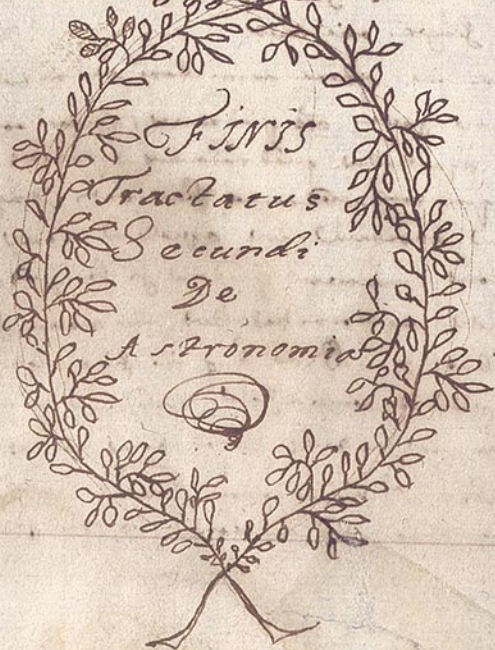 FINIS
Tractatus
Secundi
De
Astronomia